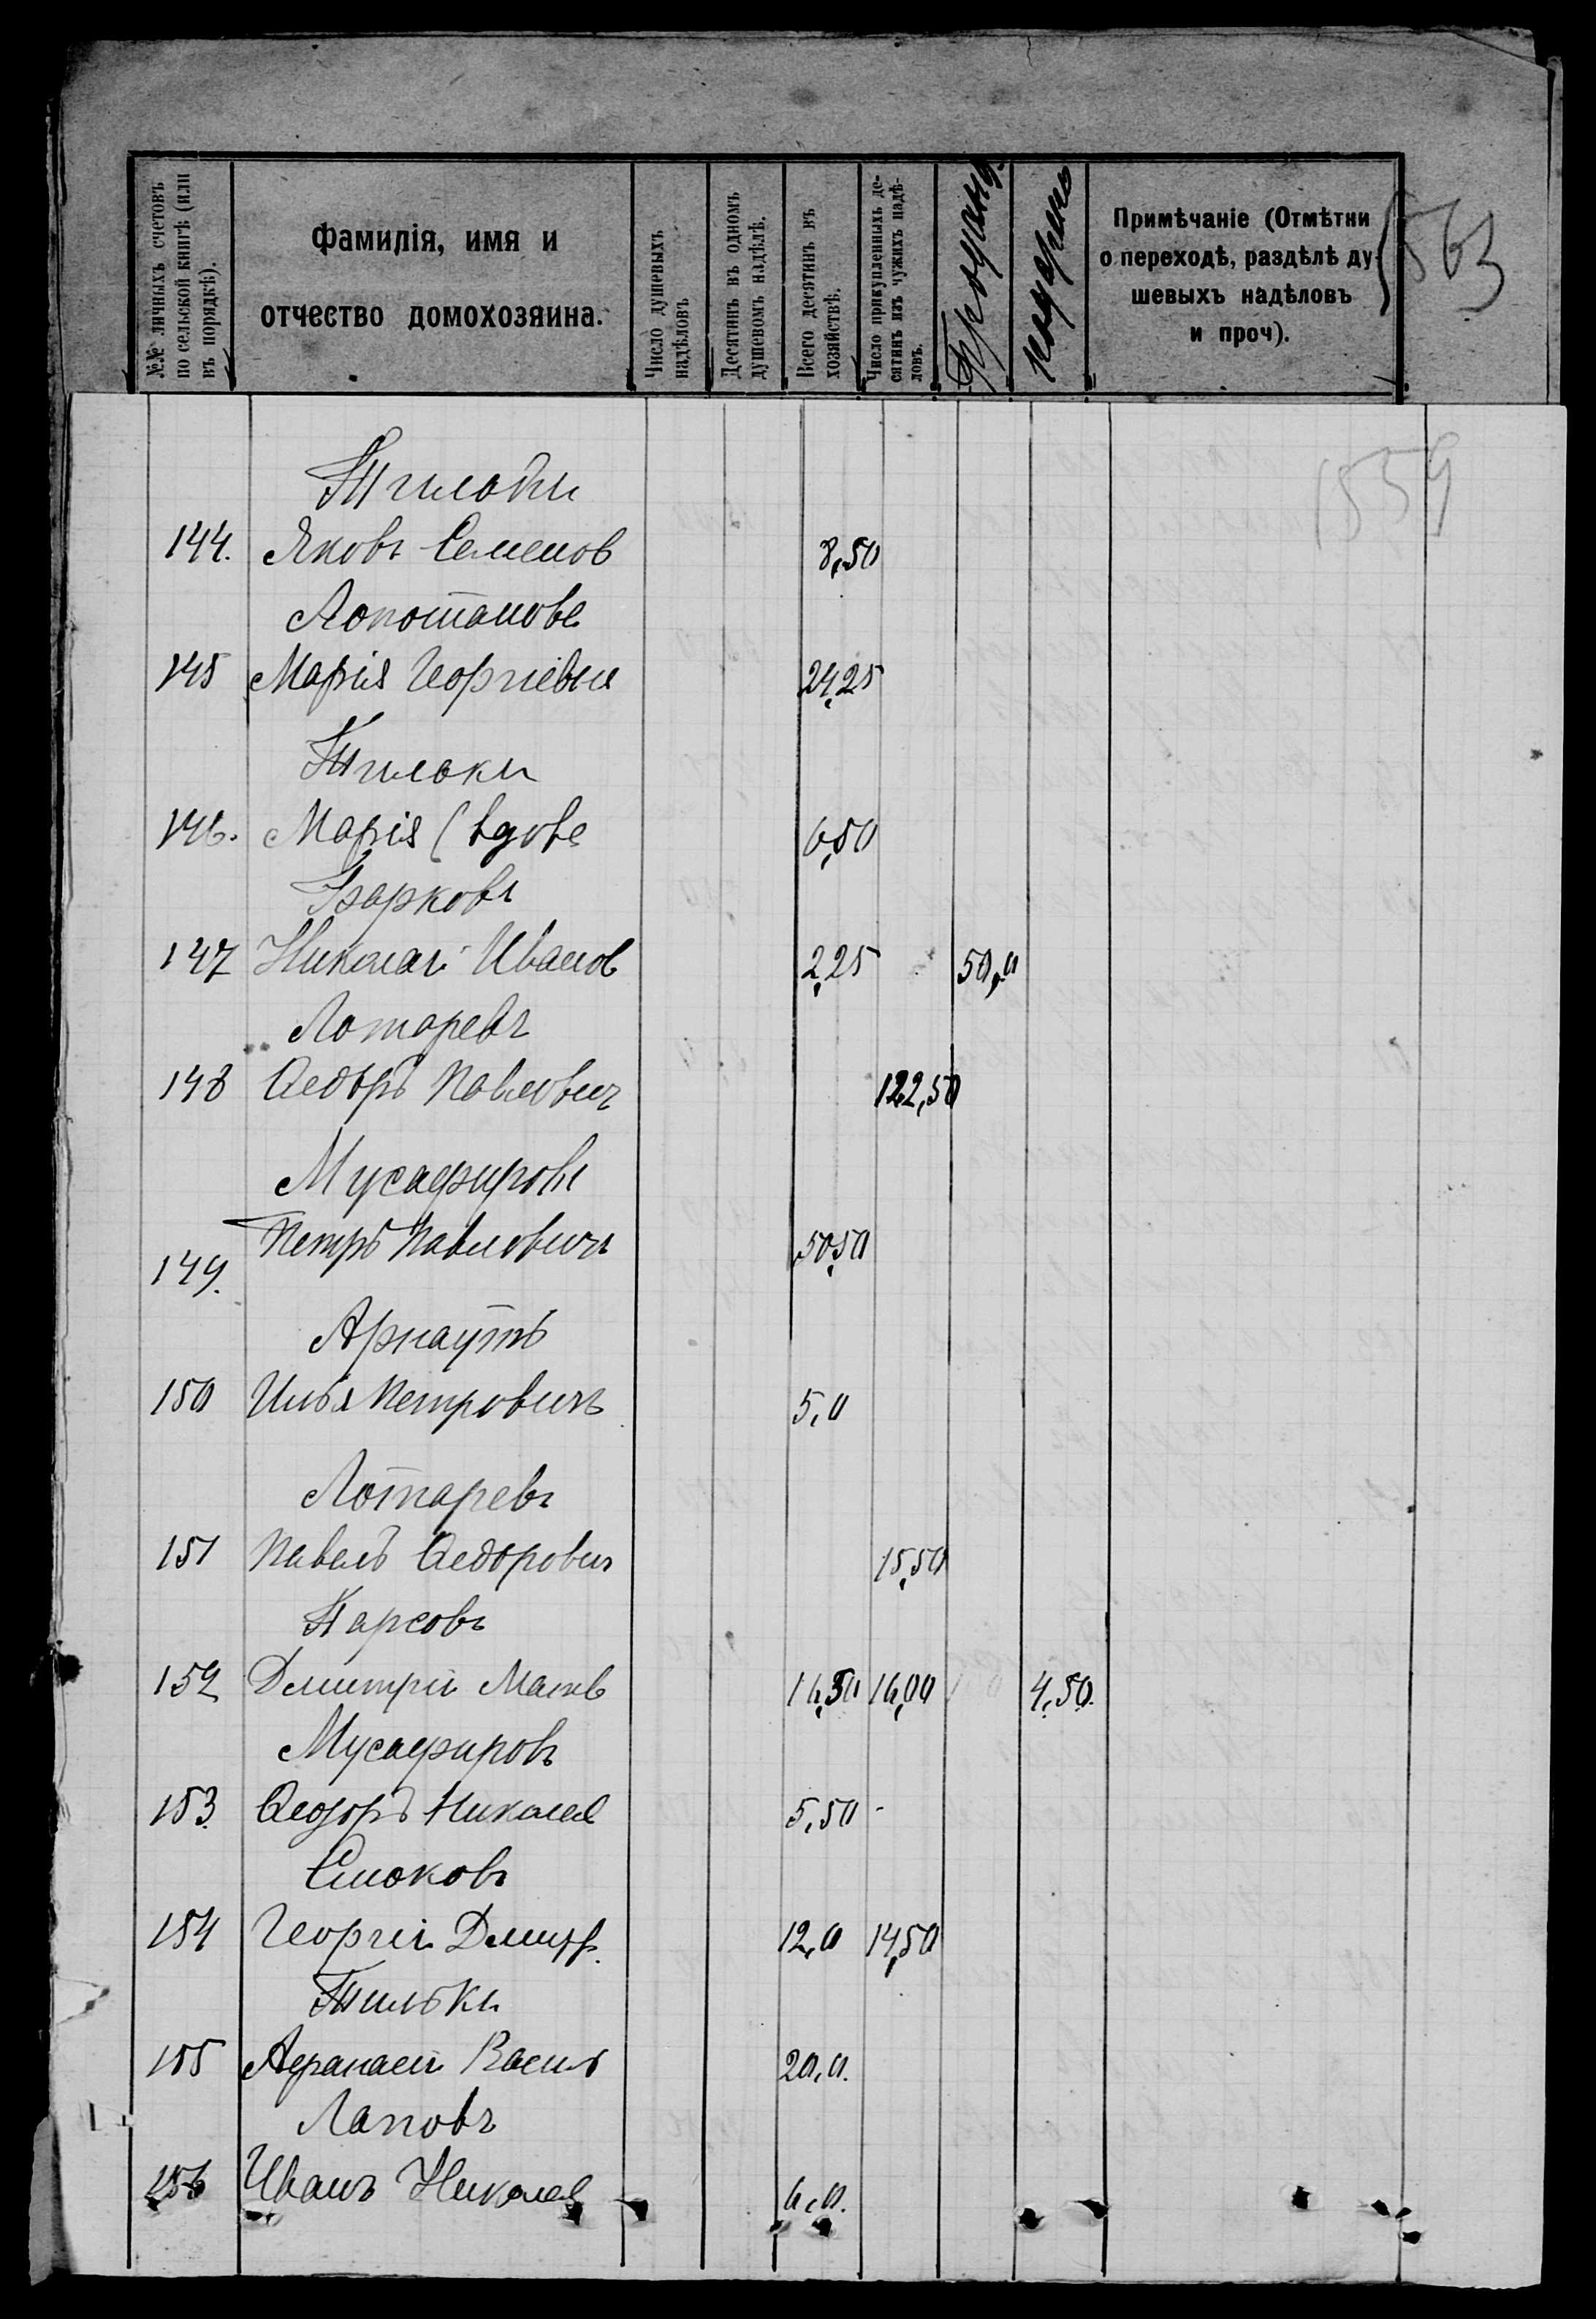 №№ личныхъ счетовъ
по сельской книгѣ (или
въ порядкѣ).
Фамилія, имя и
отчество домохозяина.
Число душевыхъ
надѣловъ
Десятинъ въ одномъ
душевомъ надѣлѣ.
Всего десятинъ въ
хозяйствѣ.
Число прикупленныхъ де-
сятинъ изъ чужихъ надѣ-
ловъ.
Примѣчаніе (Отмѣтки
о переходѣ, раздѣлѣ ду-
шевыхъ надѣловъ
и проч).
563
1559
144. Яковъ Семенов 8,50
145 Марія Георгіевна 24,25
146. Марія (вдова 6,50
147 Николай Иванов 2,25 50,0
Лотаревъ
148 Федоръ Павлович 122,50
Мусафировъ
149. Петръ Павловичъ 50,50
Арнаутъ
150 Илья Петровичъ 5,0
Лотаревъ
151 Павелъ Федорович 15,50
152 Дмитрій 16,50 16,00 4,50.
Мусафировъ
153. Федоръ Николаев 5,50 -
Стоковъ
154 Георгій Дмитр. 12,0 14,50
Тильки
155 Афанасій Васил 20,0.
Лаповъ
156 Иванъ Николаев 6,0.